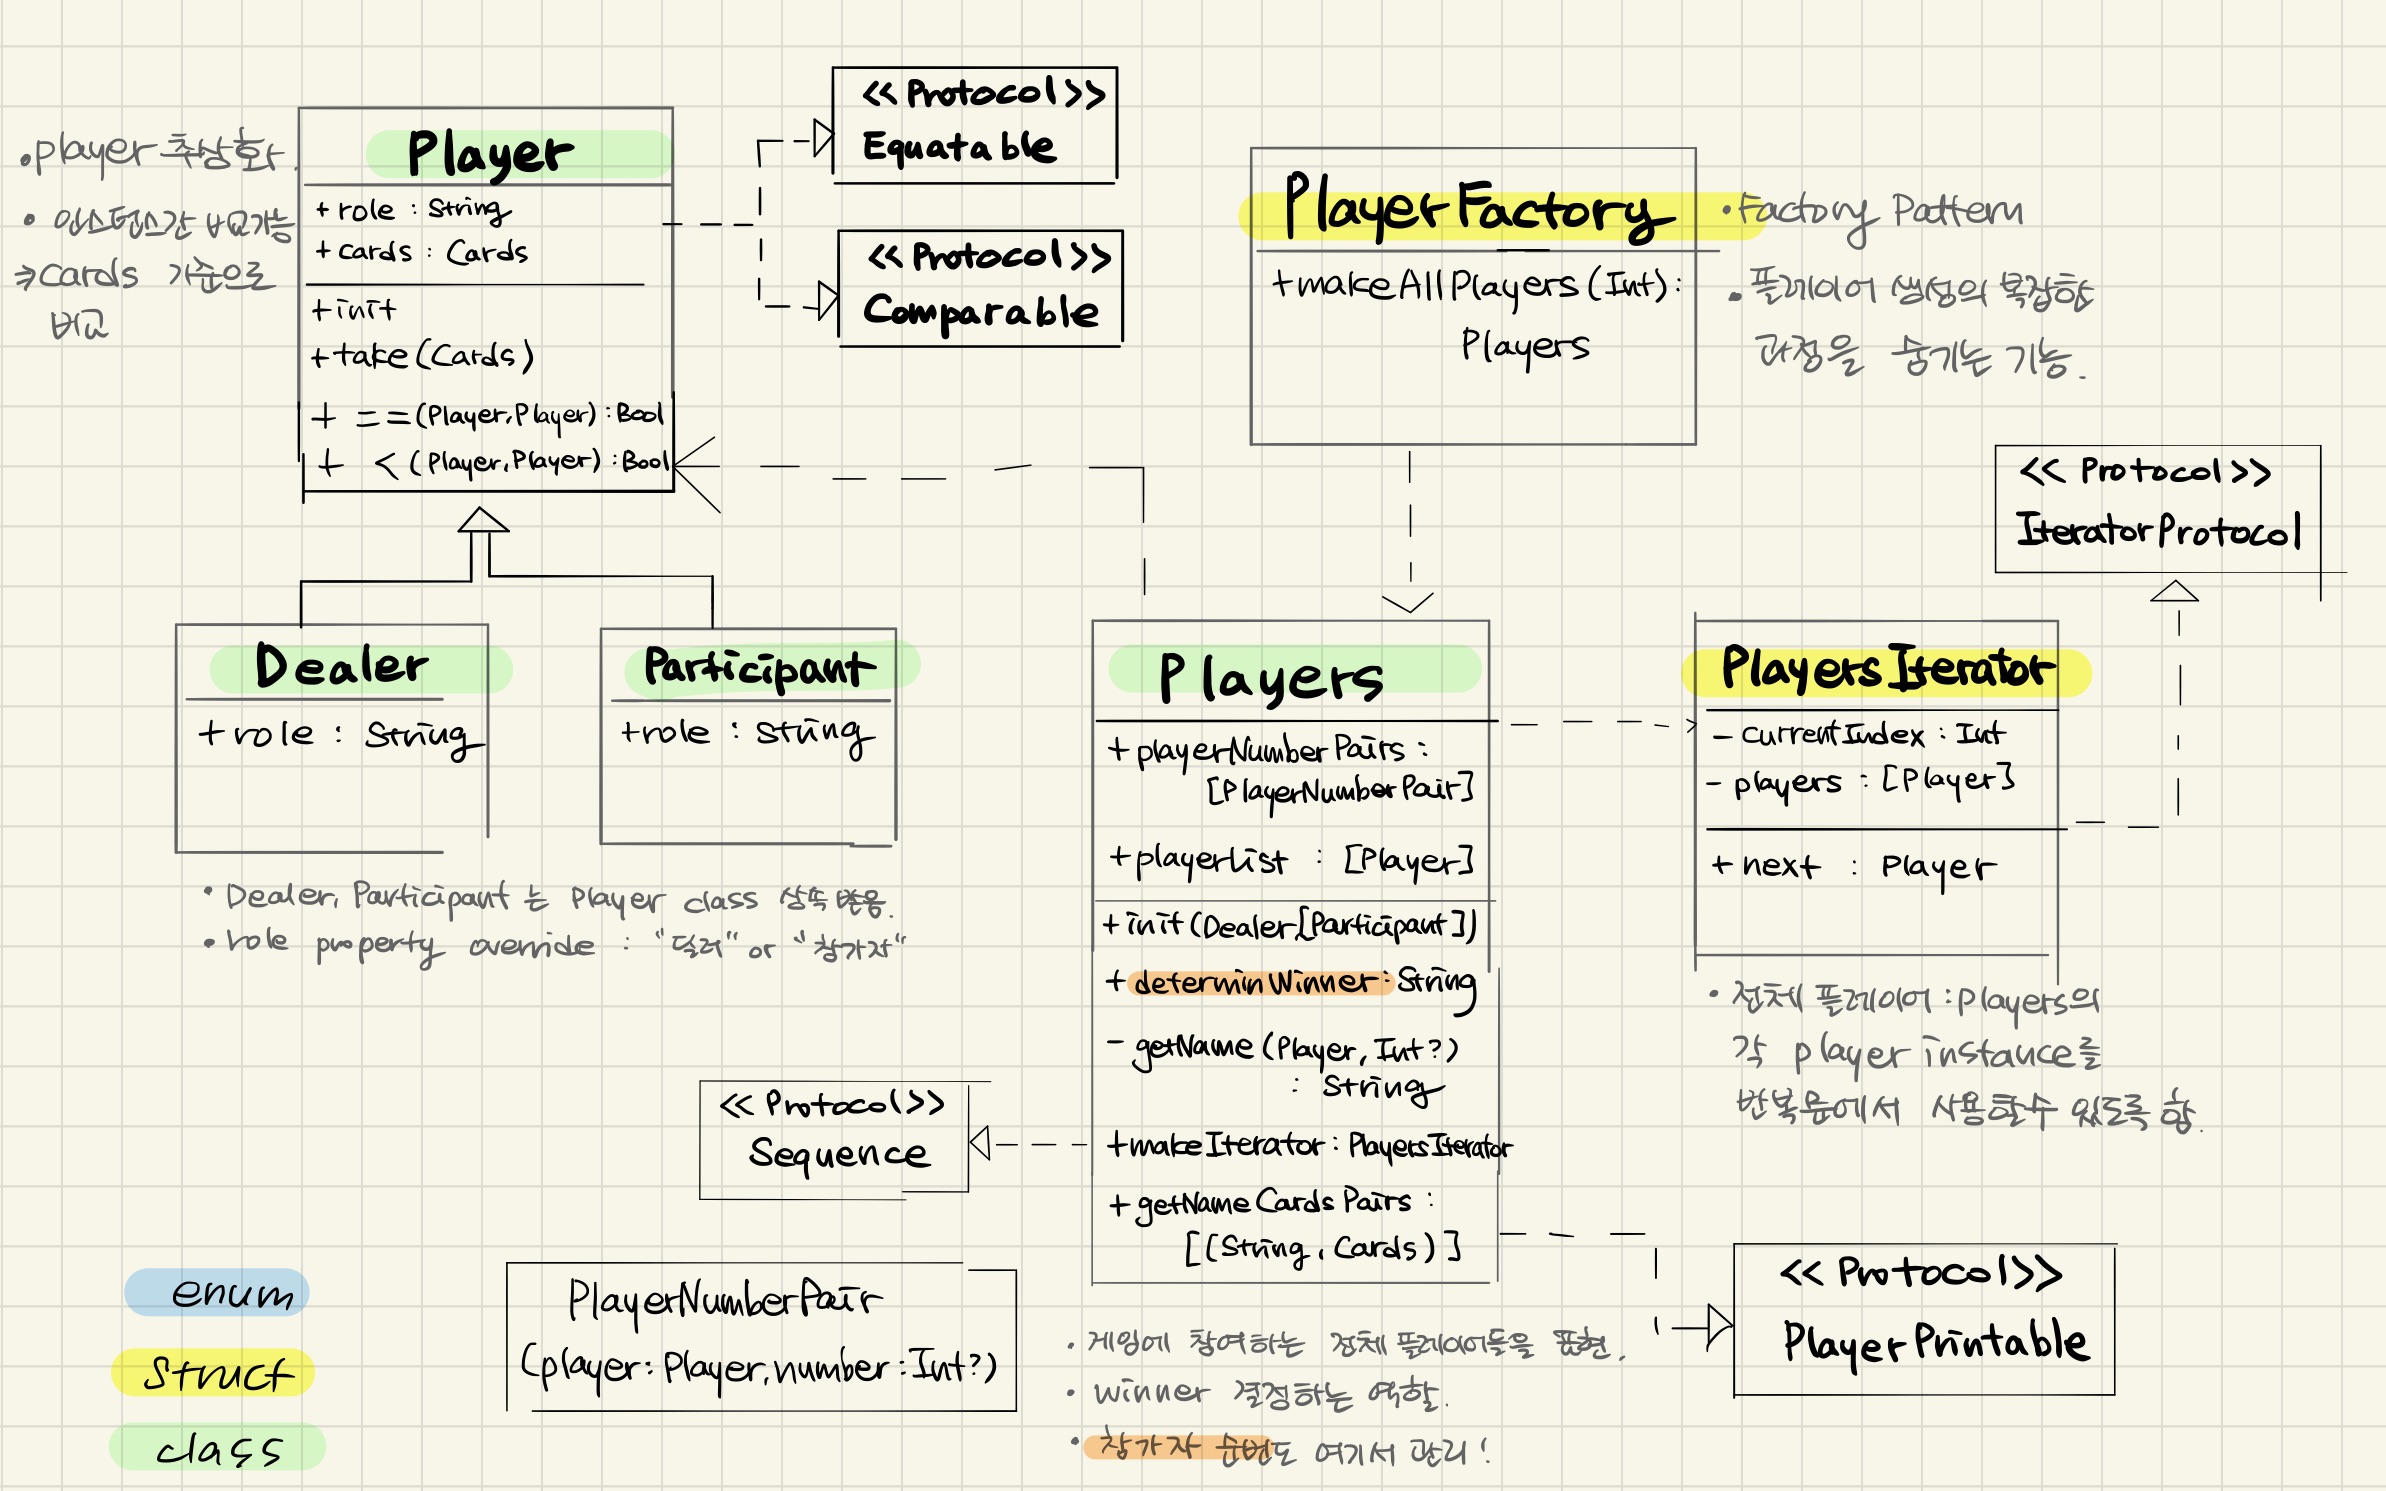 • player 추상화.
• 인스턴스간 비교가능
⇒ Cards 기준으로
비교
Player
+ role : String
+ cards : Cards
+ init
+ take (Cards)
+ == (Player, Player) : Bool
+ < (Player, Player) : Bool
<< Protocol >>
Equatable
<< Protocol >>
Comparable
PlayerFactory
+ makeAllPlayers (Int) :
Players
• Factory Pattern
• 플레이어 생성의 복잡한
과정을 숨기는 기능.
<< Protocol >>
IteratorProtocol
Dealer
+ role : String
Participant
+ role : String
• Dealer, Participant 는 Player class 상속 받음.
• role property override : "딜러" or "참가자"
Players
+ playerNumberPairs :
[PlayerNumberPair]
+ playerList : [Player]
+ init (Dealer, [Participant])
+ determinWinner : String
- getName (Player, Int?)
: String
+ makeIterator : PlayersIterator
+ getNameCardsPairs :
[(String, Cards)]
PlayersIterator
- currentIndex : Int
- players : [Player]
+ next : Player
• 전체 플레이어 : Players의
각 player instance를
반복문에서 사용할수 있도록 함.
<< Protocol >>
Sequence
<< Protocol >>
PlayerPrintable
PlayerNumberPair
(player: Player, number: Int?)
• 게임에 참여하는 전체 플레이어들을 표현.
• winner 결정하는 역할.
• 참가자 순번도 여기서 관리!
enum
struct
class